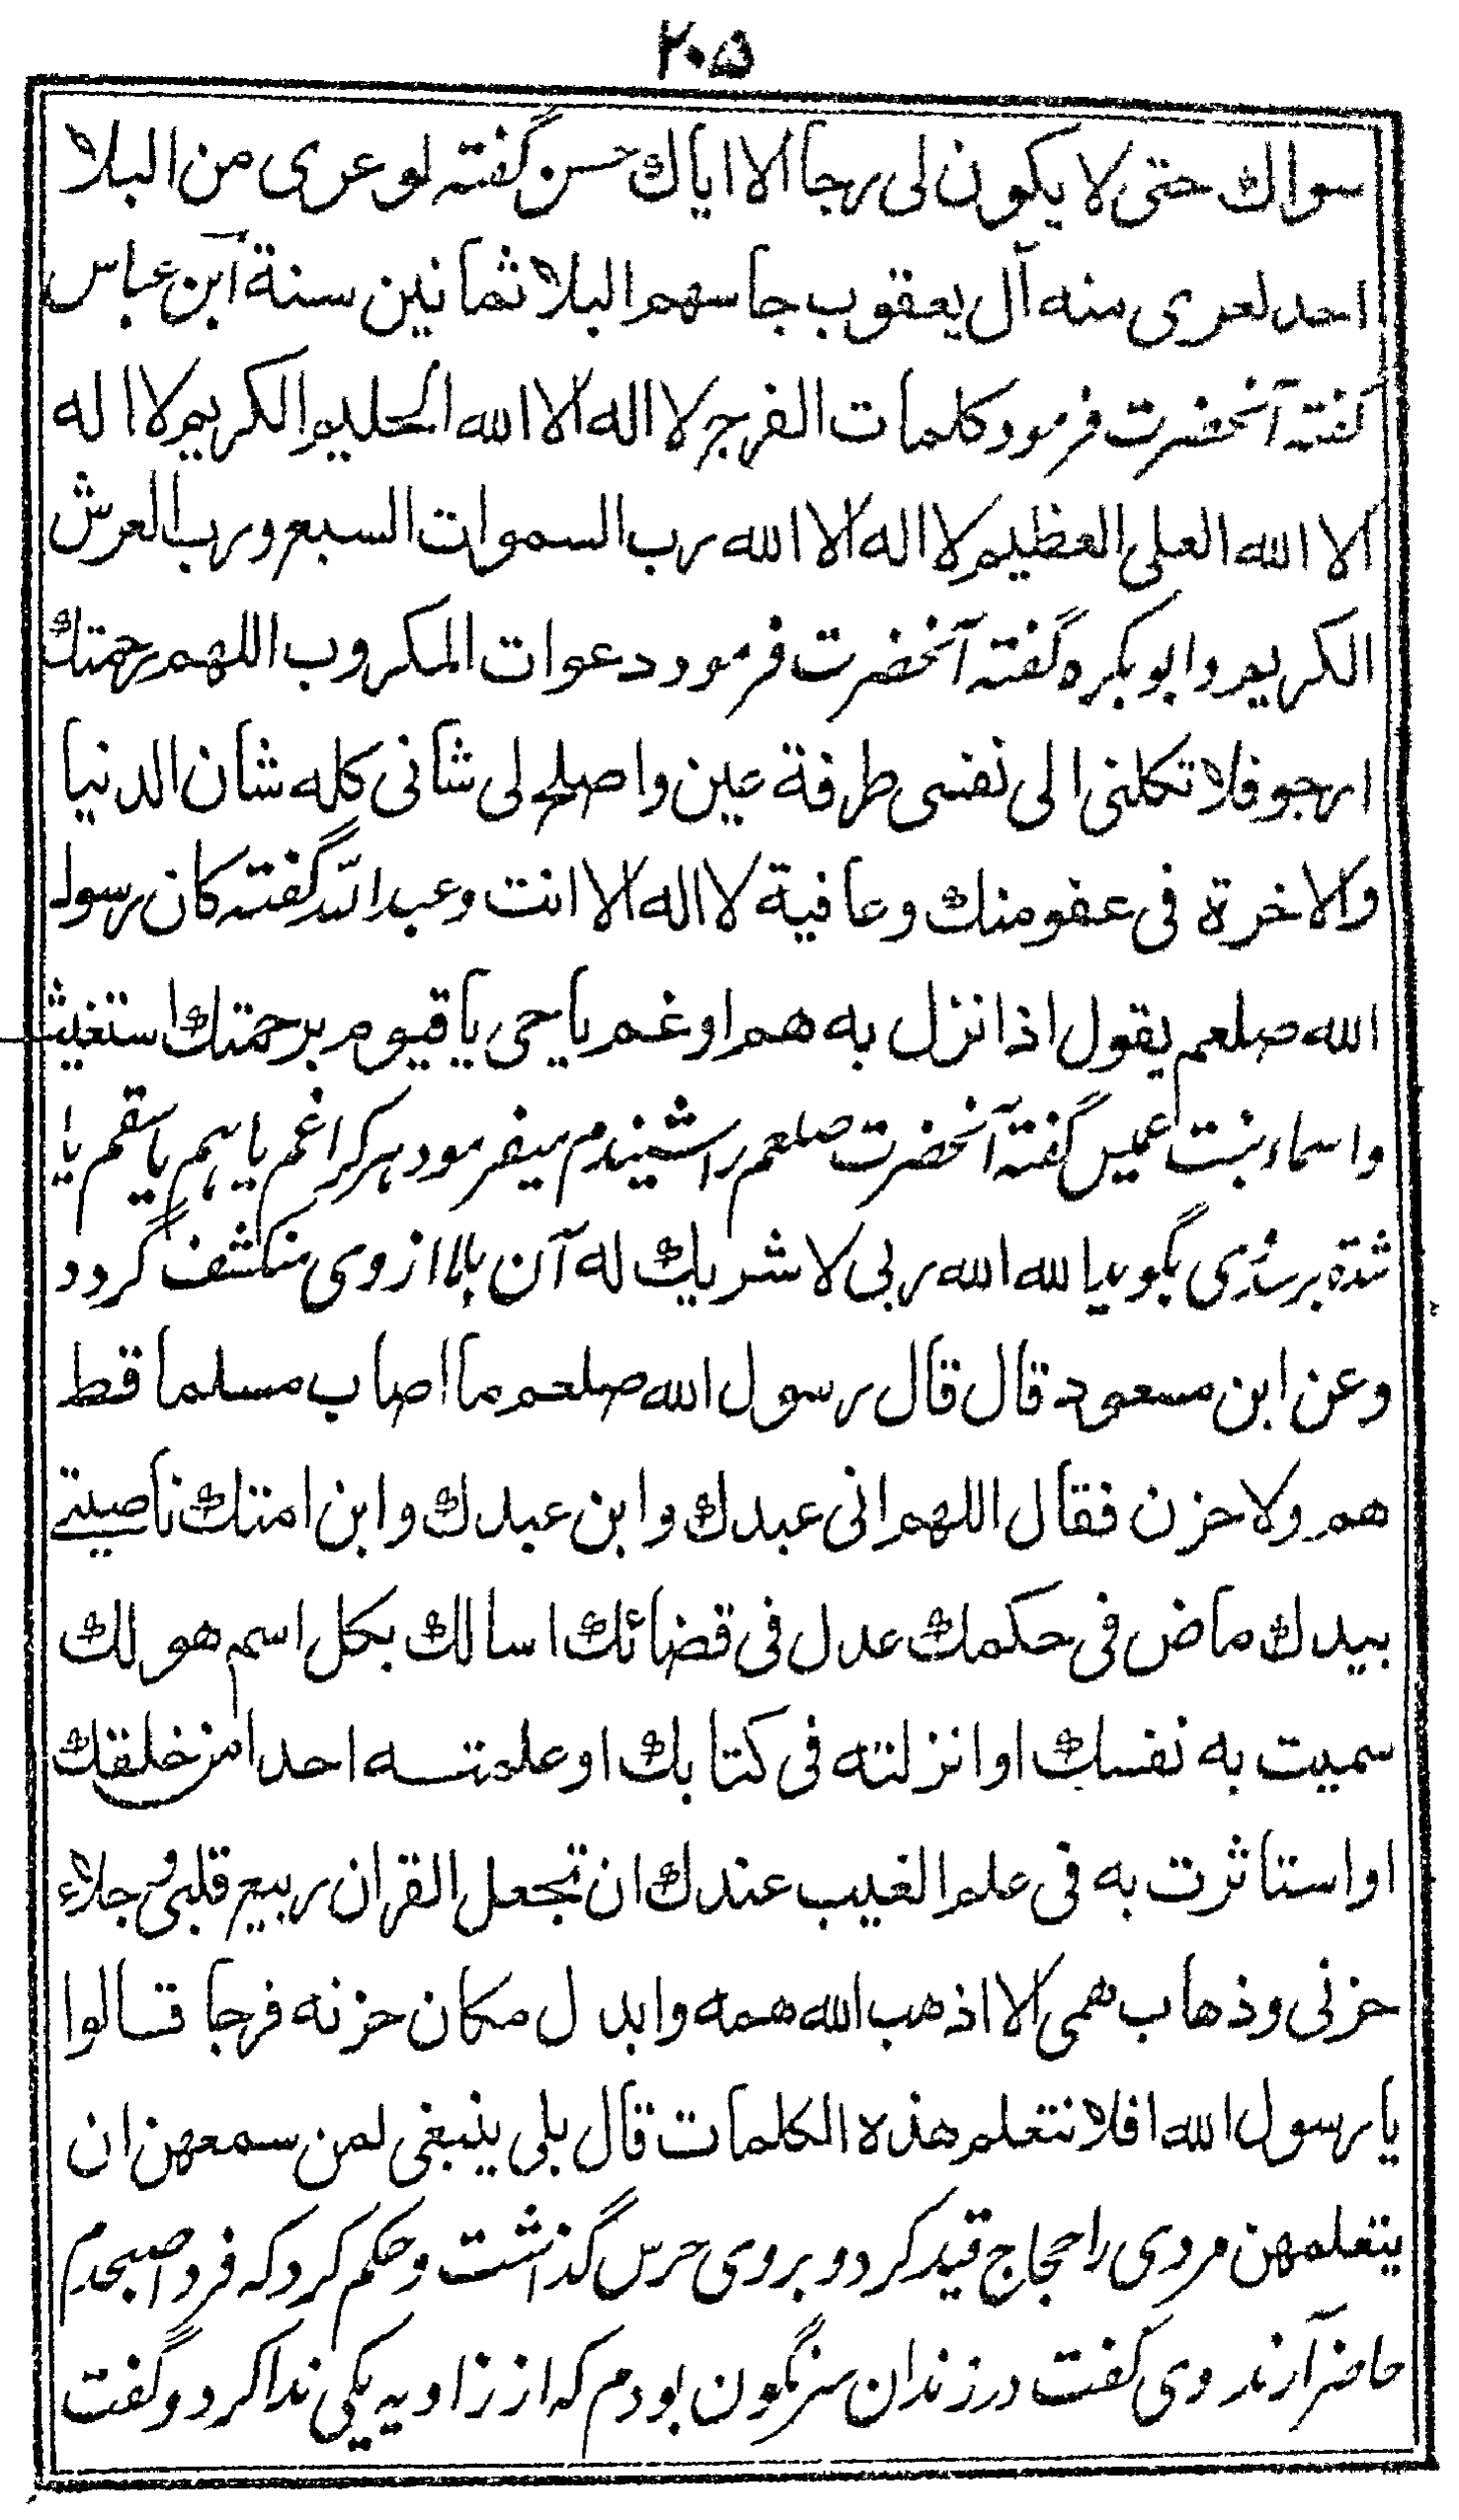 ۲۰۵
سواك حتى لا يكون لى رجا الا اياك حسن گفته لو عرى من البلا
احد لعرى منه آل يعقوب جاسهم البلا ثمانين سنة ابن عباس
گفته آنحضرت فرمود كلمات الفرج لا اله الا الله الحليم الكريم لا اله
الا الله العلى العظيم لا اله الا الله رب السموات السبع ورب العرش
الكريم وابو بكره گفته آنحضرت فرمود دعوات المكروب اللهم رحمتك
ارجو فلا تكلنى الى نفسى طرفة عين واصلح لى شانى كله شان الدنيا
والاخرة فى عفو منك وعافية لا اله الا انت وعبد الله گفته كان رسول
الله صلعم يقول اذا نزل به هم او غم يا حى يا قيوم برحمتك استغيث
واسماء بنت عميس گفته آنحضرت صلعم را شنيدم ميفرمود هركرا غم يا هم يا سقم يا
شدة برسد وى بگويد يا الله الله ربى لا شريك له آن بلا از وى منكشف گردد
وعن ابن مسعود قال قال رسول الله صلعم ما اصاب مسلما قط
هم ولا حزن فقال اللهم انى عبدك وابن عبدك وابن امتك ناصيتے
بيدك ماض فى حكمك عدل فى قضائك اسالك بكل اسم هو لك
سميت به نفسك او انزلته فى كتابك او علمته احدا من خلقك
او استاثرت به فى علم الغيب عندك ان تجعل القران ربيع قلبى وجلاء
حزنى وذهاب همى الا اذهب الله همه وابدل مكان حزنه فرجا قالوا
يا رسول الله افلا نتعلم هذه الكلمات قال بلى ينبغى لمن سمعهن ان
يتعلمهن مردى را حجاج قيد كرد و بروى حرس گذاشت و حكم كرد كه فردا صبحدم
حاضر آرند وى گفت در زندان سرنگون بودم كه از زاويه يكى ندا كرد و گفت